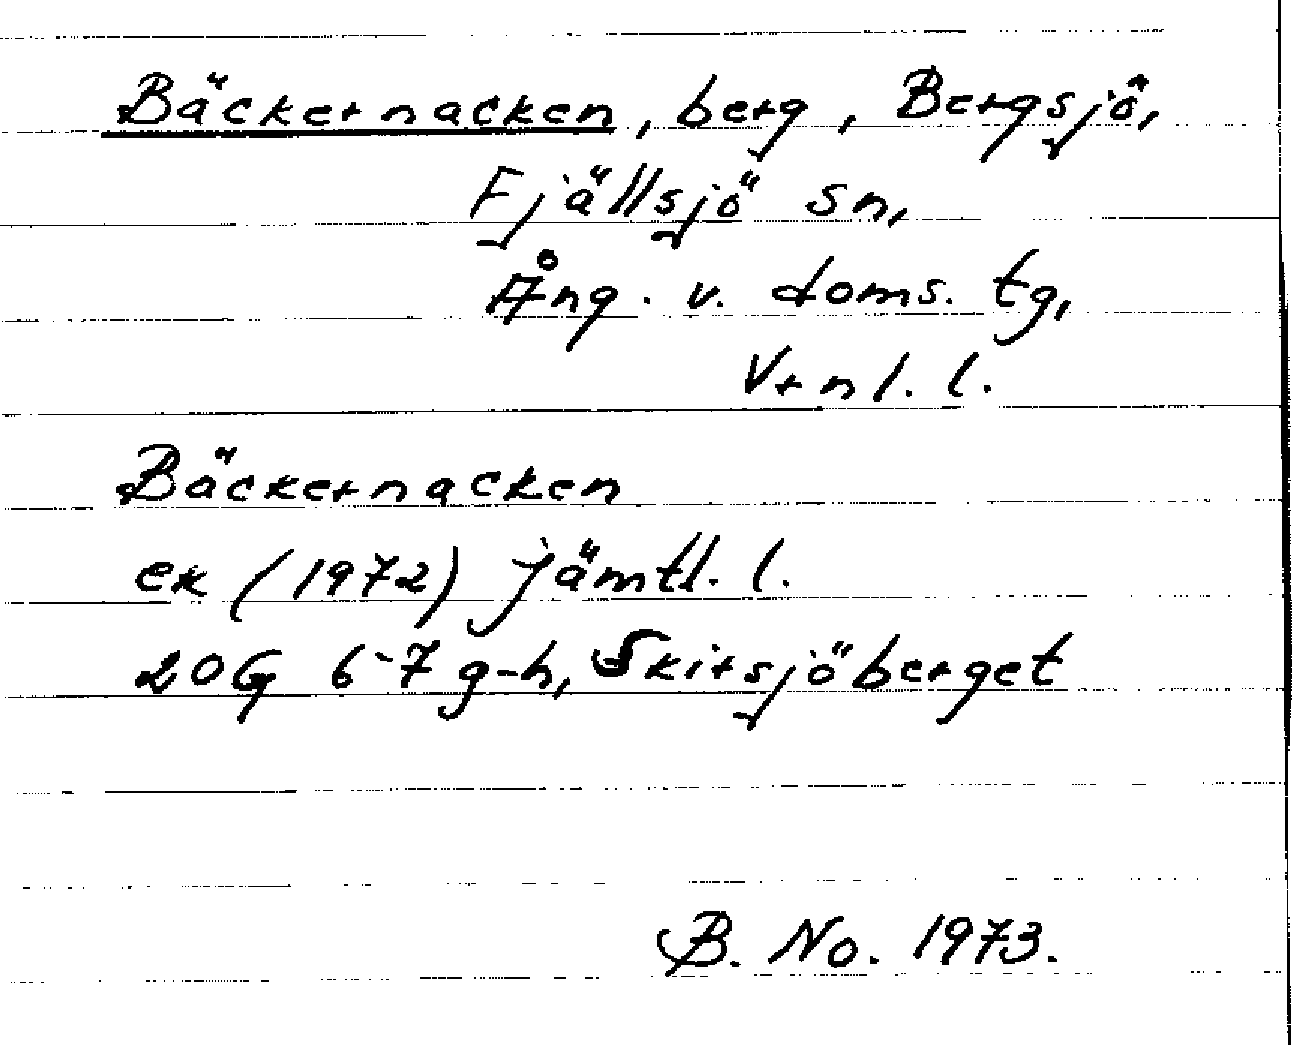 Bäckernacken, berg, Bergsjö,
Fjällsjö sn,
Ång. v. doms. tg,
Vrnl. l.
Bäckernacken
ek (1972) Jämtl. l.
20G 6-7 g-h, Skirsjöberget
B. No. 1973.